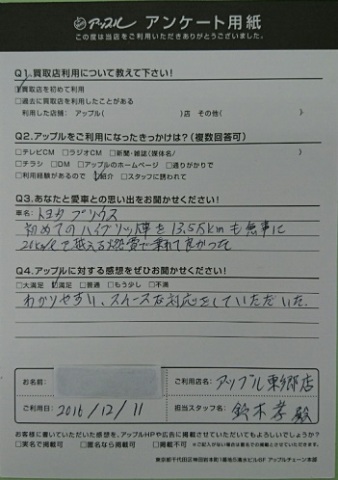 アップル アンケート用紙
この度は当店をご利用いただきありがとうございました。
Q1.買取店利用について教えて下さい!
☑買取店を初めて利用
□過去に買取店を利用したことがある
利用した店舗: アップル( )店 その他( )
Q2.アップルをご利用になったきっかけは?(複数回答可)
□テレビCM □ラジオCM □新聞・雑誌(媒体名/ )
□チラシ □DM □アップルのホームページ □通りがかりで
□利用経験があるので ☑紹介 □スタッフに誘われて
Q3.あなたと愛車との思い出をお聞かせください!
車名: トヨタ プリウス
初めてのハイブリッド車を13.5万kmも無事に
20km/Lを越える燃費で乗れて良かった
Q4.アップルに対する感想をぜひお聞かせください!
□大満足 ☑満足 □普通 □もう少し □不満
わかりやすい、スムーズな対応をしていただいた。
お名前:
ご利用店名: アップル東郷店
ご利用日: 2016/12/11
担当スタッフ名: 鈴木孝毅
お客様に書いていただいた感想を、アップルHPや広告に掲載させていただいてもよろしいでしょうか?
□実名で掲載可 □匿名なら掲載可 □掲載不可
アップルチェーン本部